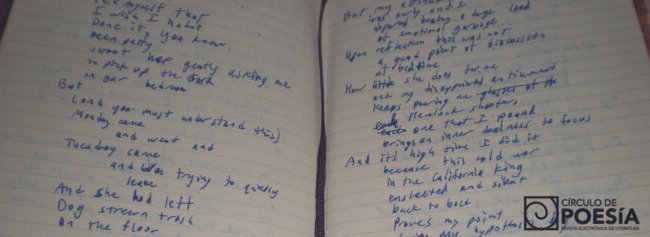 Tell myself that
I wish I hadn't
Done it, you know
been petty
about her gently asking me
to pick up the trash
in our bedroom
But
Lord you must understand this)
Monday came
and went and
Tuesday came
and was trying to quietly
leave
And she had left
Dog strewn trash
On the floor
But my
was surly and I
deported being a huge load
of emotional garbage
Upon reflection this was not
a good point of discussion
at bedtime
How little she does for me
and my disappointed entitlement
Keeps pouring me glasses of
shooters
one that I pound
brings an inner darkness to focus
And it's high time I did it
because this cold war
in the california king
and silent
back to back
Proves my point
my
CÍRCULO DE
POESÍA
REVISTA ELECTRÓNICA DE LITERATURA